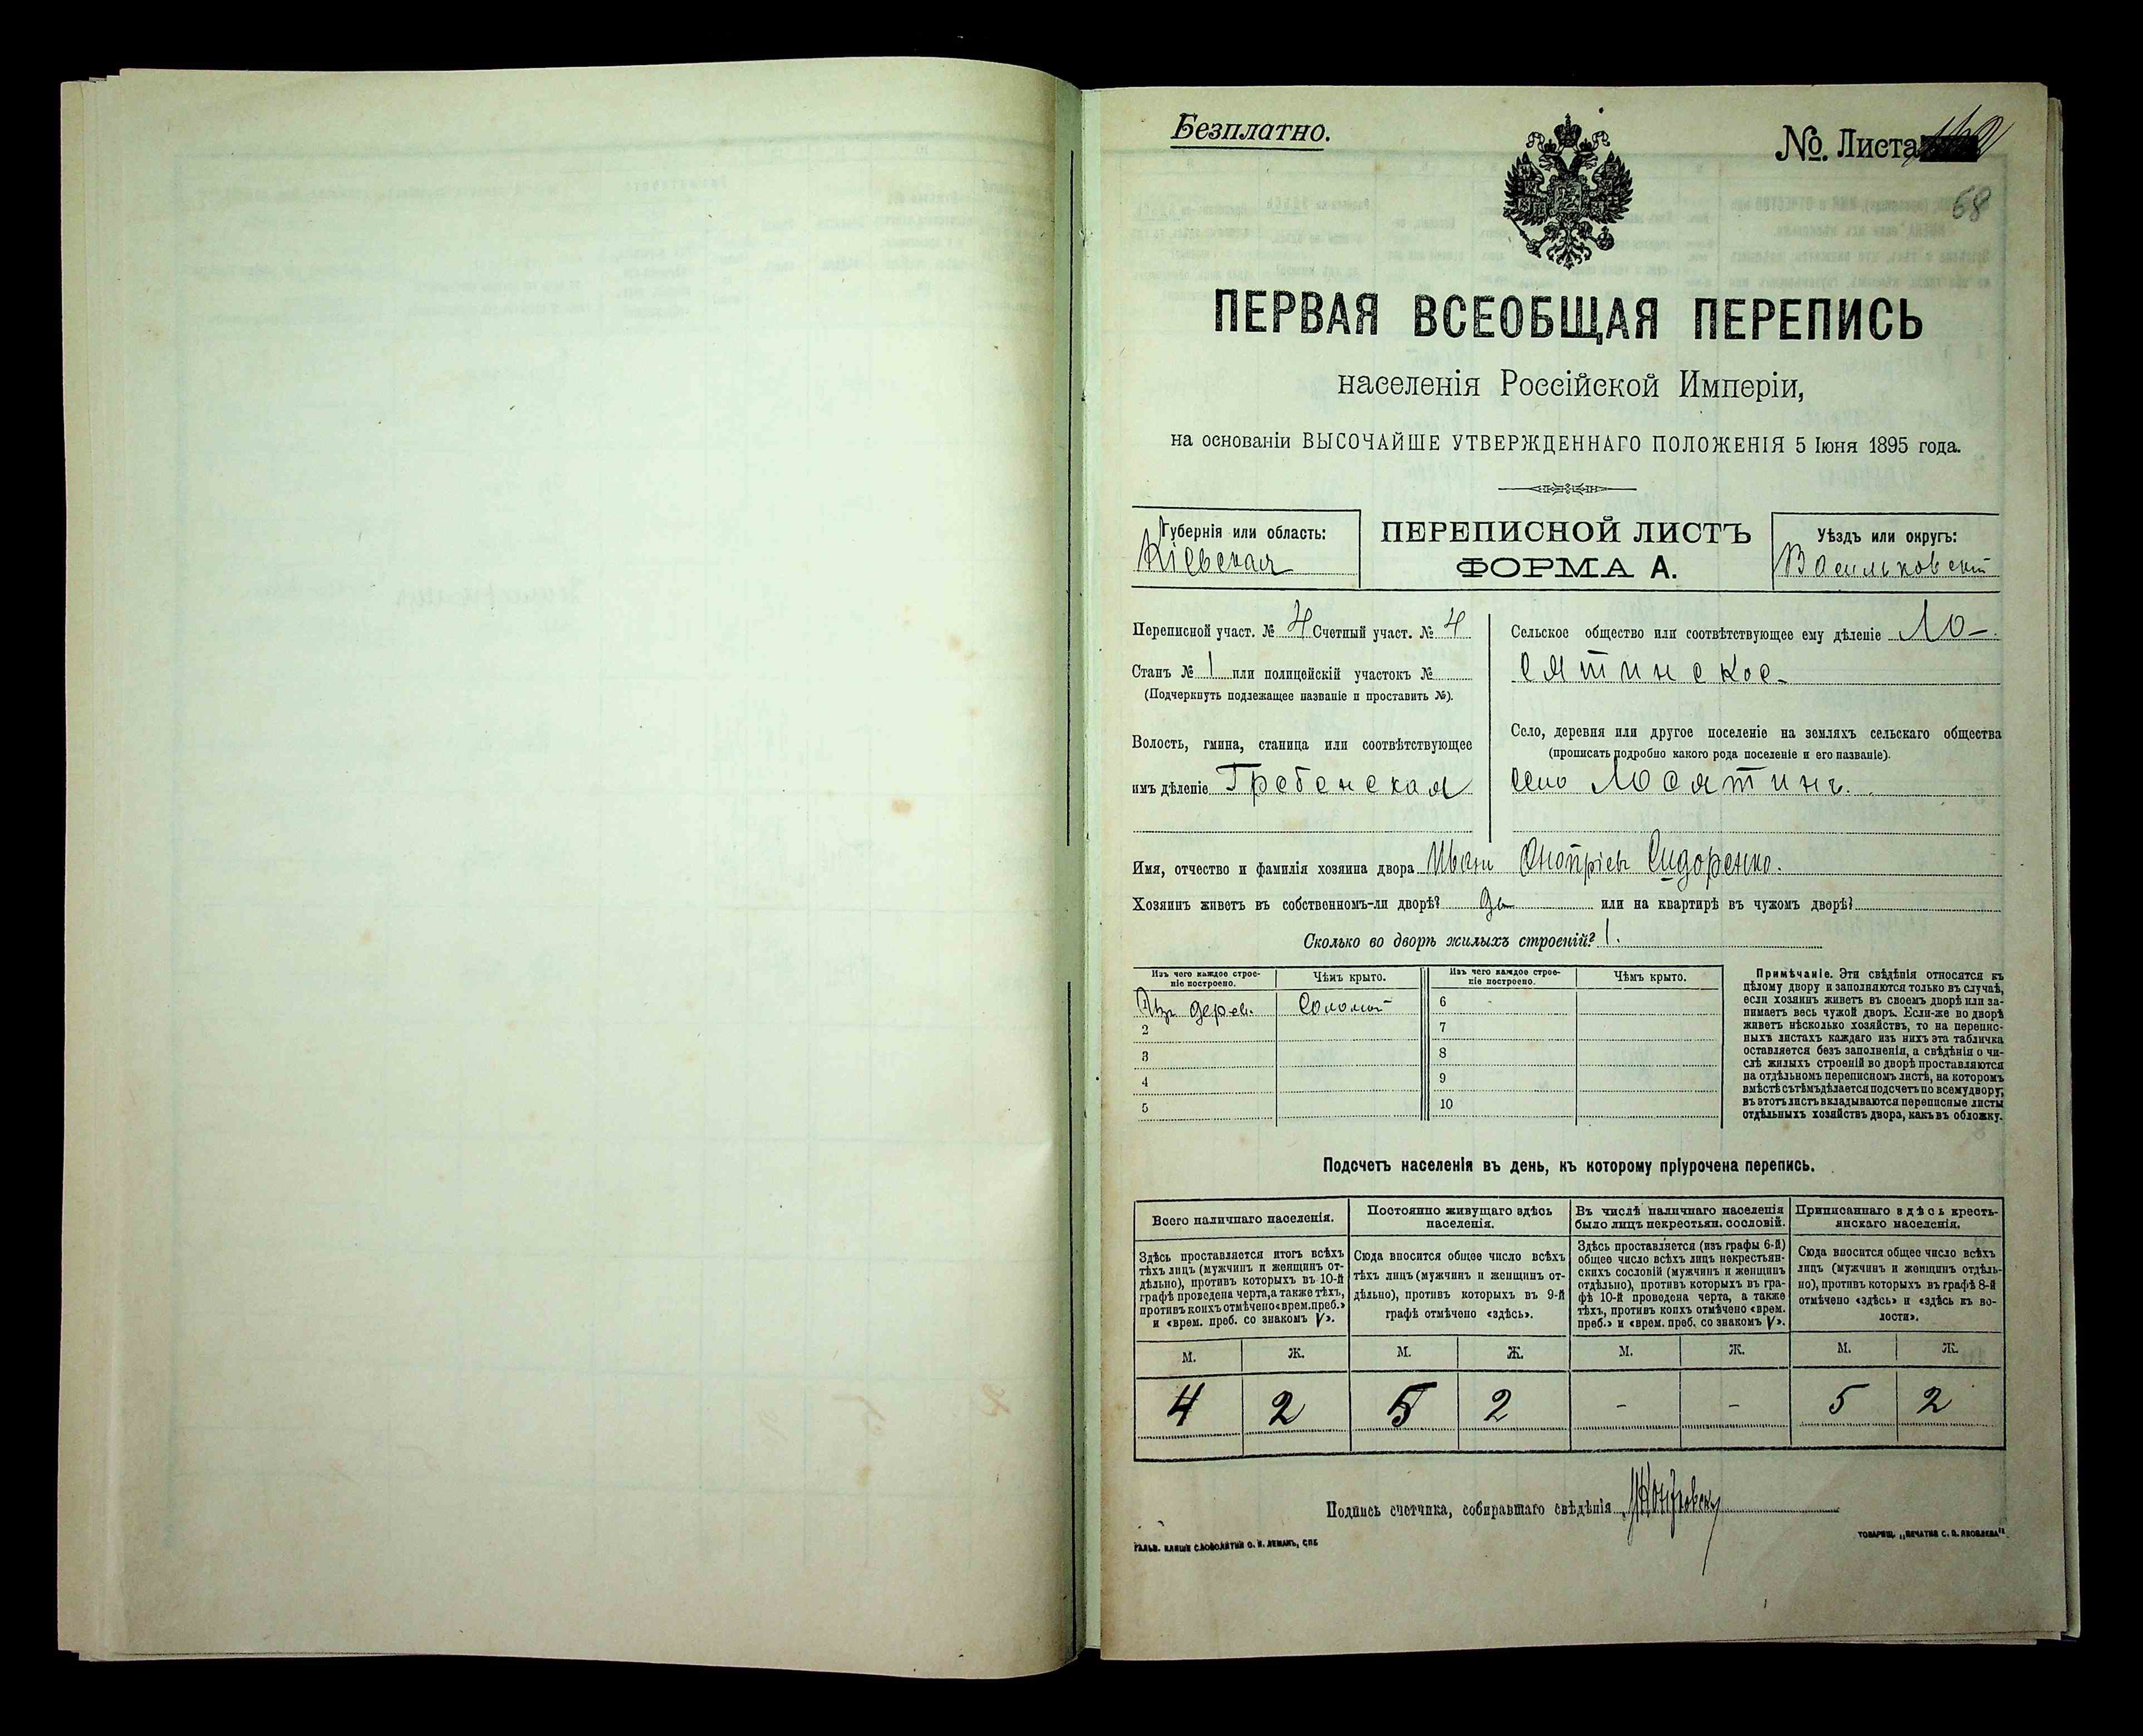 Безплатно.
№. Листа
68
ПЕРВАЯ ВСЕОБЩАЯ ПЕРЕПИСЬ
населенія Россійской Имперіи,
на основаніи ВЫСОЧАЙШЕ УТВЕРЖДЕННАГО ПОЛОЖЕНІЯ 5 Іюня 1895 года.
Губернія или область:
Кіевская
ПЕРЕПИСНОЙ ЛИСТЪ
ФОРМА А.
Уѣздъ или округъ:
Васильковскій
Переписной участ. № 4 Счетный участ. № 4
Станъ № 1 или полицейскій участокъ №
(Подчеркнуть подлежащее названіе и проставить №).
Волость, гмина, станица или соотвѣтствующее
имъ дѣленіе Гребенская
Сельское общество или соотвѣтствующее ему дѣленіе Ло-
сятинское
Село, деревня или другое поселеніе на земляхъ сельскаго общества
(прописать подробно какого рода поселеніе и его названіе).
село Лосятинъ.
Имя, отчество и фамилія хозяина двора Иванъ Онопріевъ Сидоренко.
Хозяинъ живетъ въ собственномъ-ли дворѣ? да или на квартирѣ въ чужомъ дворѣ?
Сколько во дворѣ жилыхъ строеній? 1.
Изъ чего каждое строе-
ніе построено.
Чѣмъ крыто.
Изъ чего каждое строе-
ніе построено.
Чѣмъ крыто.
Изъ дерев. Соломой 6
2 7
3 8
4 9
5 10
Примѣчаніе. Эти свѣдѣнія относятся къ
цѣлому двору и заполняются только въ случаѣ,
если хозяинъ живетъ въ своемъ дворѣ или за-
нимаетъ весь чужой дворъ. Если-же во дворѣ
живетъ нѣсколько хозяйствъ, то на перепис-
ныхъ листахъ каждаго изъ нихъ эта табличка
оставляется безъ заполненія, а свѣдѣнія о чи-
слѣ жилыхъ строеній во дворѣ проставляются
на отдѣльномъ переписномъ листѣ, на которомъ
вмѣстѣ съ тѣмъ дѣлается подсчетъ по всему двору;
въ этотъ листъ вкладываются переписные листы
отдѣльныхъ хозяйствъ двора, какъ въ обложку.
Подсчетъ населенія въ день, къ которому пріурочена перепись.
Всего наличнаго населенія.
Здѣсь проставляется итогъ всѣхъ
тѣхъ лицъ (мужчинъ и женщинъ от-
дѣльно), противъ которыхъ въ 10-й
графѣ проведена черта, а также тѣхъ,
противъ коихъ отмѣчено «врем. преб.»
и «врем. преб. со знакомъ V».
Постоянно живущаго здѣсь
населенія.
Сюда вносится общее число всѣхъ
тѣхъ лицъ (мужчинъ и женщинъ от-
дѣльно), противъ которыхъ въ 9-й
графѣ отмѣчено «здѣсь».
Въ числѣ наличнаго населенія
было лицъ некрестьян. сословій.
Здѣсь проставляется (изъ графы 6-й)
общее число всѣхъ лицъ некрестьян-
скихъ сословій (мужчинъ и женщинъ
отдѣльно), противъ которыхъ въ гра-
фѣ 10-й проведена черта, а также
тѣхъ, противъ коихъ отмѣчено «врем.
преб.» и «врем. преб. со знакомъ V».
Приписаннаго здѣсь кресть-
янскаго населенія.
Сюда вносится общее число всѣхъ
лицъ (мужчинъ и женщинъ отдѣль-
но), противъ которыхъ въ графѣ 8-й
отмѣчено «здѣсь» и «здѣсь къ во-
лости».
М. Ж. М. Ж. М. Ж. М. Ж.
4 2 5 2 - - 5 2
Подпись счетчика, собиравшаго свѣдѣнія
ГАЛЬВ. КЛИШЕ СЛОВОЛИТНИ О. И. ЛЕМАНЪ, СПБ
ТОВАРИЩ. „ПЕЧАТНЯ С. П. ЯКОВЛЕВА“